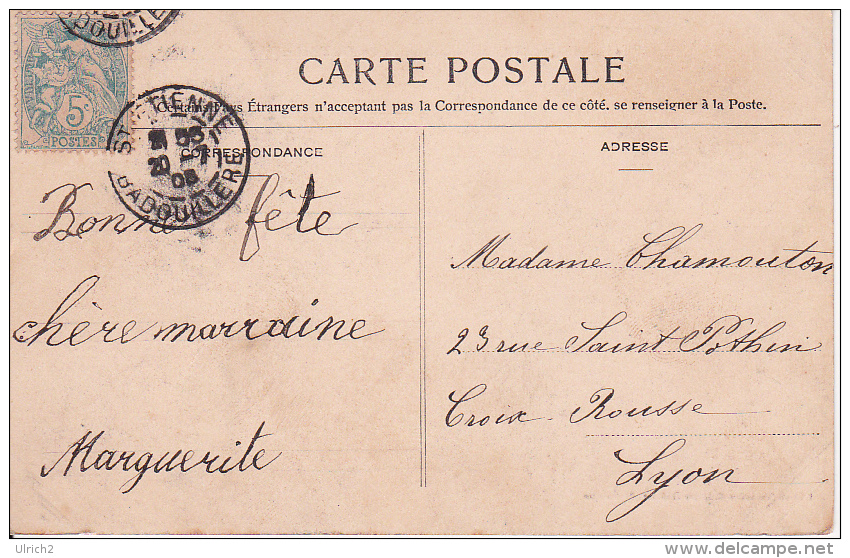 CARTE POSTALE
Certains Pays Étrangers n'acceptant pas la Correspondance de ce côté, se renseigner à la Poste.
5c
POSTES
BADOUILLÈRE
ST-ETIENNE
BADOUILLÈRE
20
08
CORRESPONDANCE
Bonne fête
chère marraine
Marguerite
ADRESSE
Madame Chamouton
23 rue Saint Pothin
Croix Rousse
Lyon
Ulrich2
www.delcampe.net